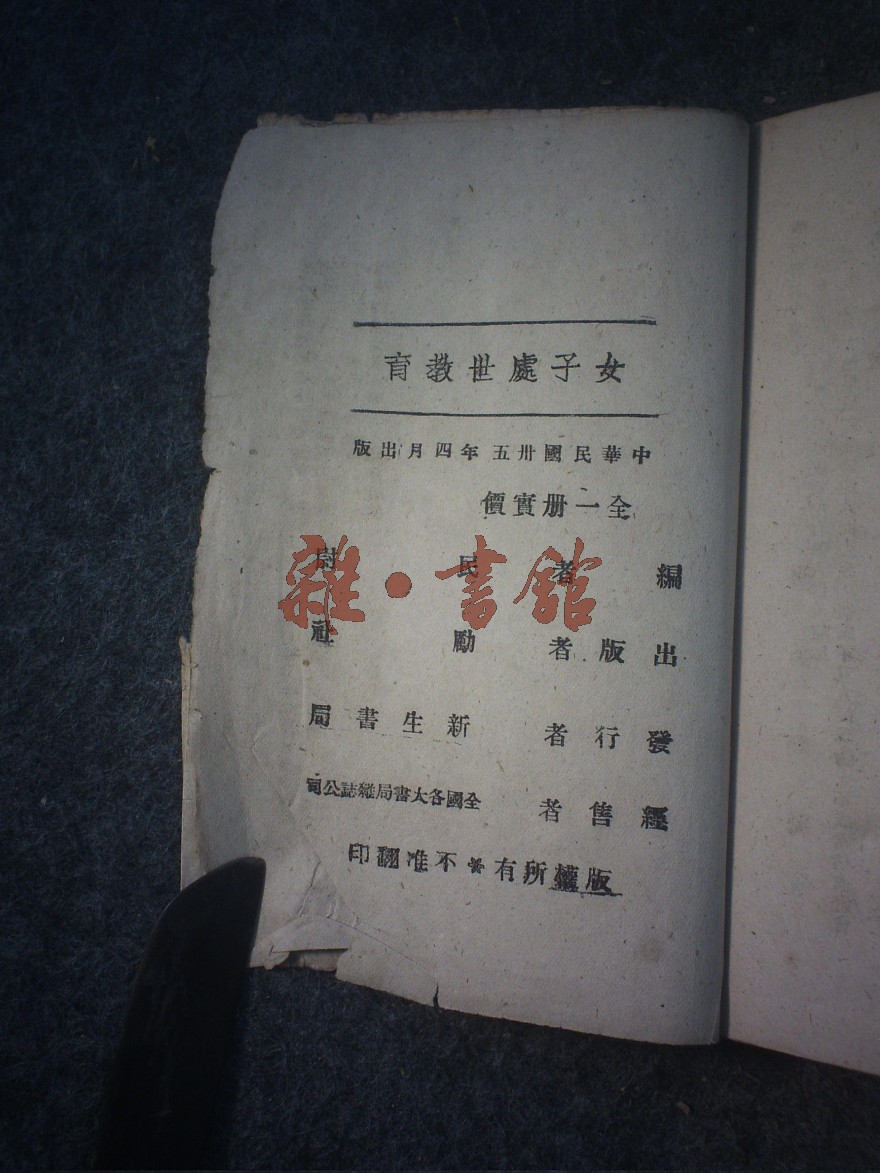 女子處世教育
中華民國卅五年四月出版
全一册實價
編著 民尉
出版者 勵社
發行者 新生書局
經售者 全國各大書局雜誌公司
版權所有※不准翻印
雜·書館